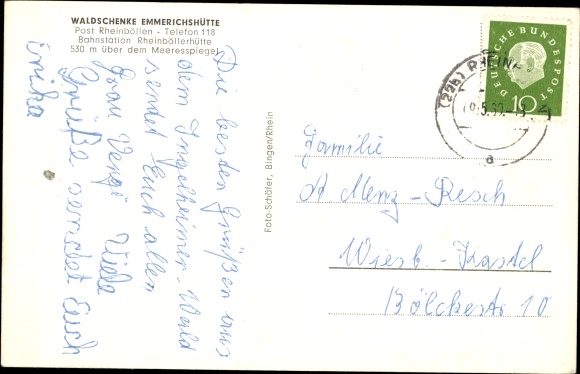 WALDSCHENKE EMMERICHSHÜTTE
Post Rheinböllen - Telefon 118
Bahnstation Rheinböllerhütte
530 m über dem Meeresspiegel
Die besten Grüßen aus
dem Ingelheimer-Wald
sendet Euch allen
Frau Viele
Grüße sendet Euch
Erika
Foto-Schäfer, Bingen/Rhein
DEUTSCHE BUNDESPOST
10
(22b) RHEIN
5.60
a
Familie
A Menz-Resch
Wiesb.-Kastel
Bölckestr 10